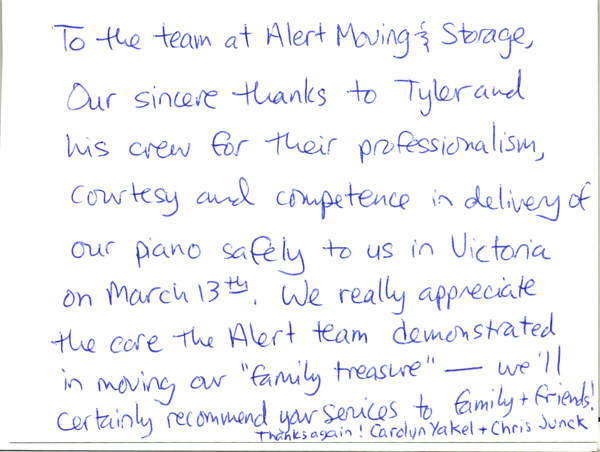 To the team at Alert Moving & Storage,
Our sincere thanks to Tyler and
his crew for their professionalism,
courtesy and competence in delivery of
our piano safely to us in Victoria
on March 13th. We really appreciate
the care the Alert team demonstrated
in moving our "family treasure" — we'll
certainly recommend your services to family + friends!
Thanks again! Carolyn Yakel + Chris Junck